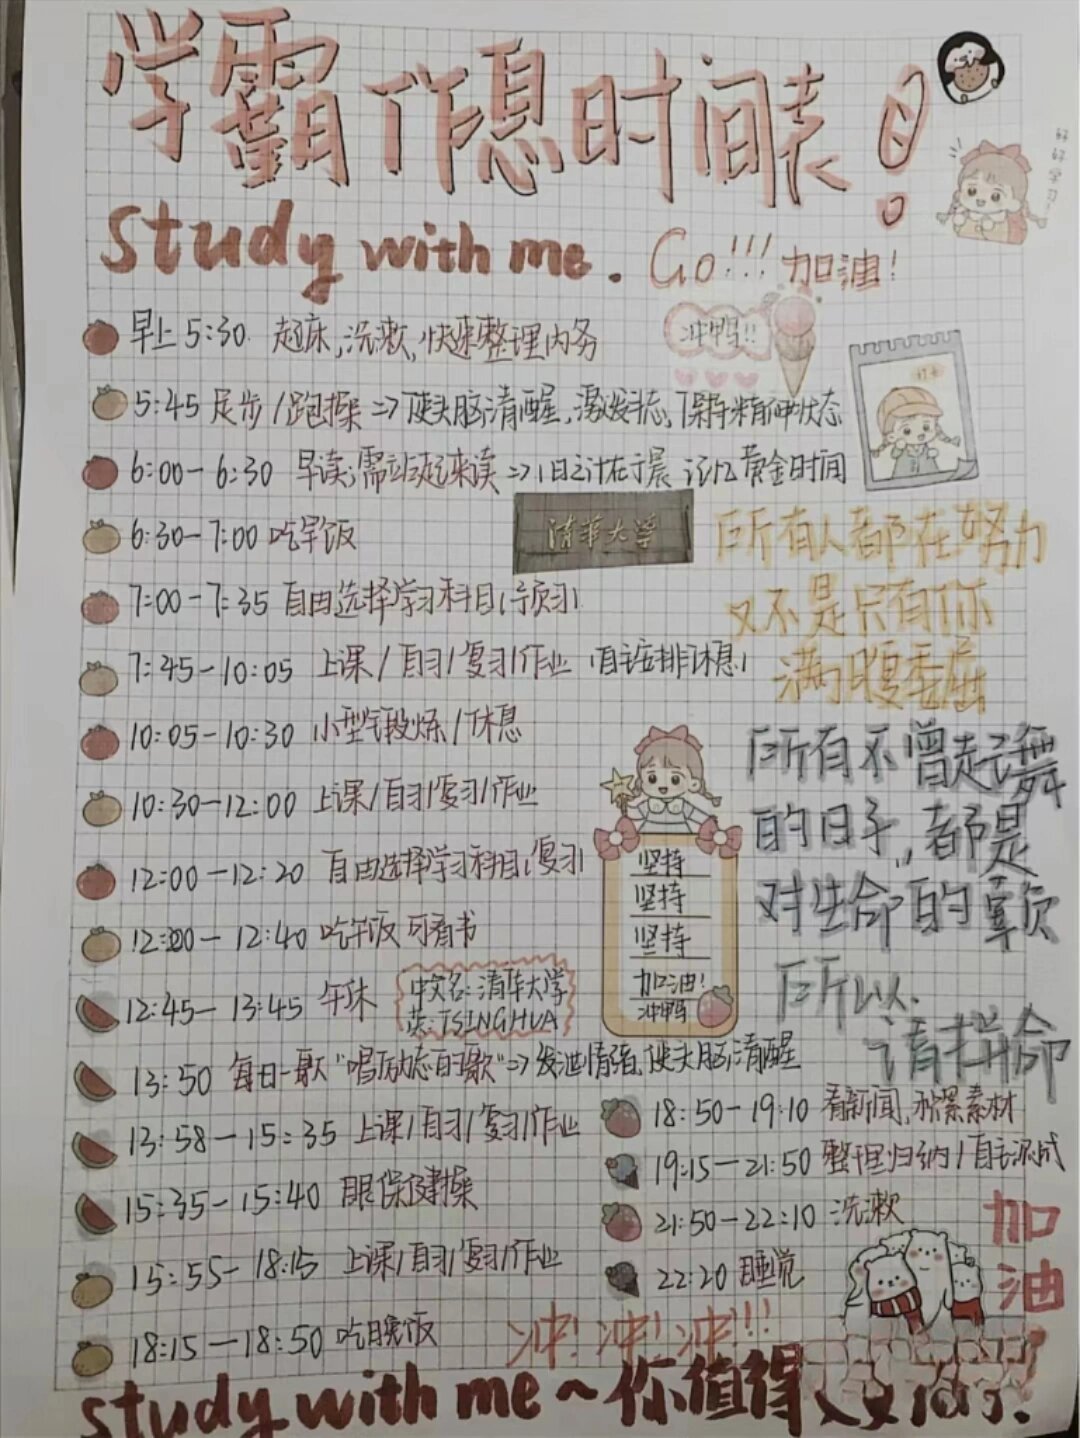 学霸作息时间表!
好好学习
study with me. Go!!! 加油!
早上 5:30 起床,洗漱,快速整理内务
冲鸭!!
5:45 足步/跑操 => 使头脑清醒,激发斗志,保持精神状态
6:00-6:30 早读;需站起来读 => 1日之计在于晨 记忆黄金时间
6:30-7:00 吃早饭
清华大学
所有人都在努力
又不是只有你
满腹委屈
7:00-7:35 自由选择学习科目(预习)
7:45-10:05 上课/自习/复习/作业 (自主安排休息)
10:05-10:30 小型锻炼/休息
所有不曾起舞
的日子,都是
对生命的辜负
所以
请拼命
10:30-12:00 上课/自习/复习/作业
12:00-12:20 自由选择学习科目(复习)
12:20-12:40 吃午饭 可看书
坚持
坚持
坚持
加油!
冲鸭
12:45-13:45 午休
中文名:清华大学
英:TSINGHUA
13:50 每日一歌"唱励志的歌" => 发泄情绪,使头脑清醒
13:58-15:35 上课/自习/复习/作业
15:35-15:40 眼保健操
15:55-18:15 上课/自习/复习/作业
18:15-18:50 吃晚饭
18:50-19:10 看新闻,积累素材
19:15-21:50 整理归纳/自主
21:50-22:10 洗漱
22:20 睡觉
加油
冲!冲!冲!!!
study with me~你值得